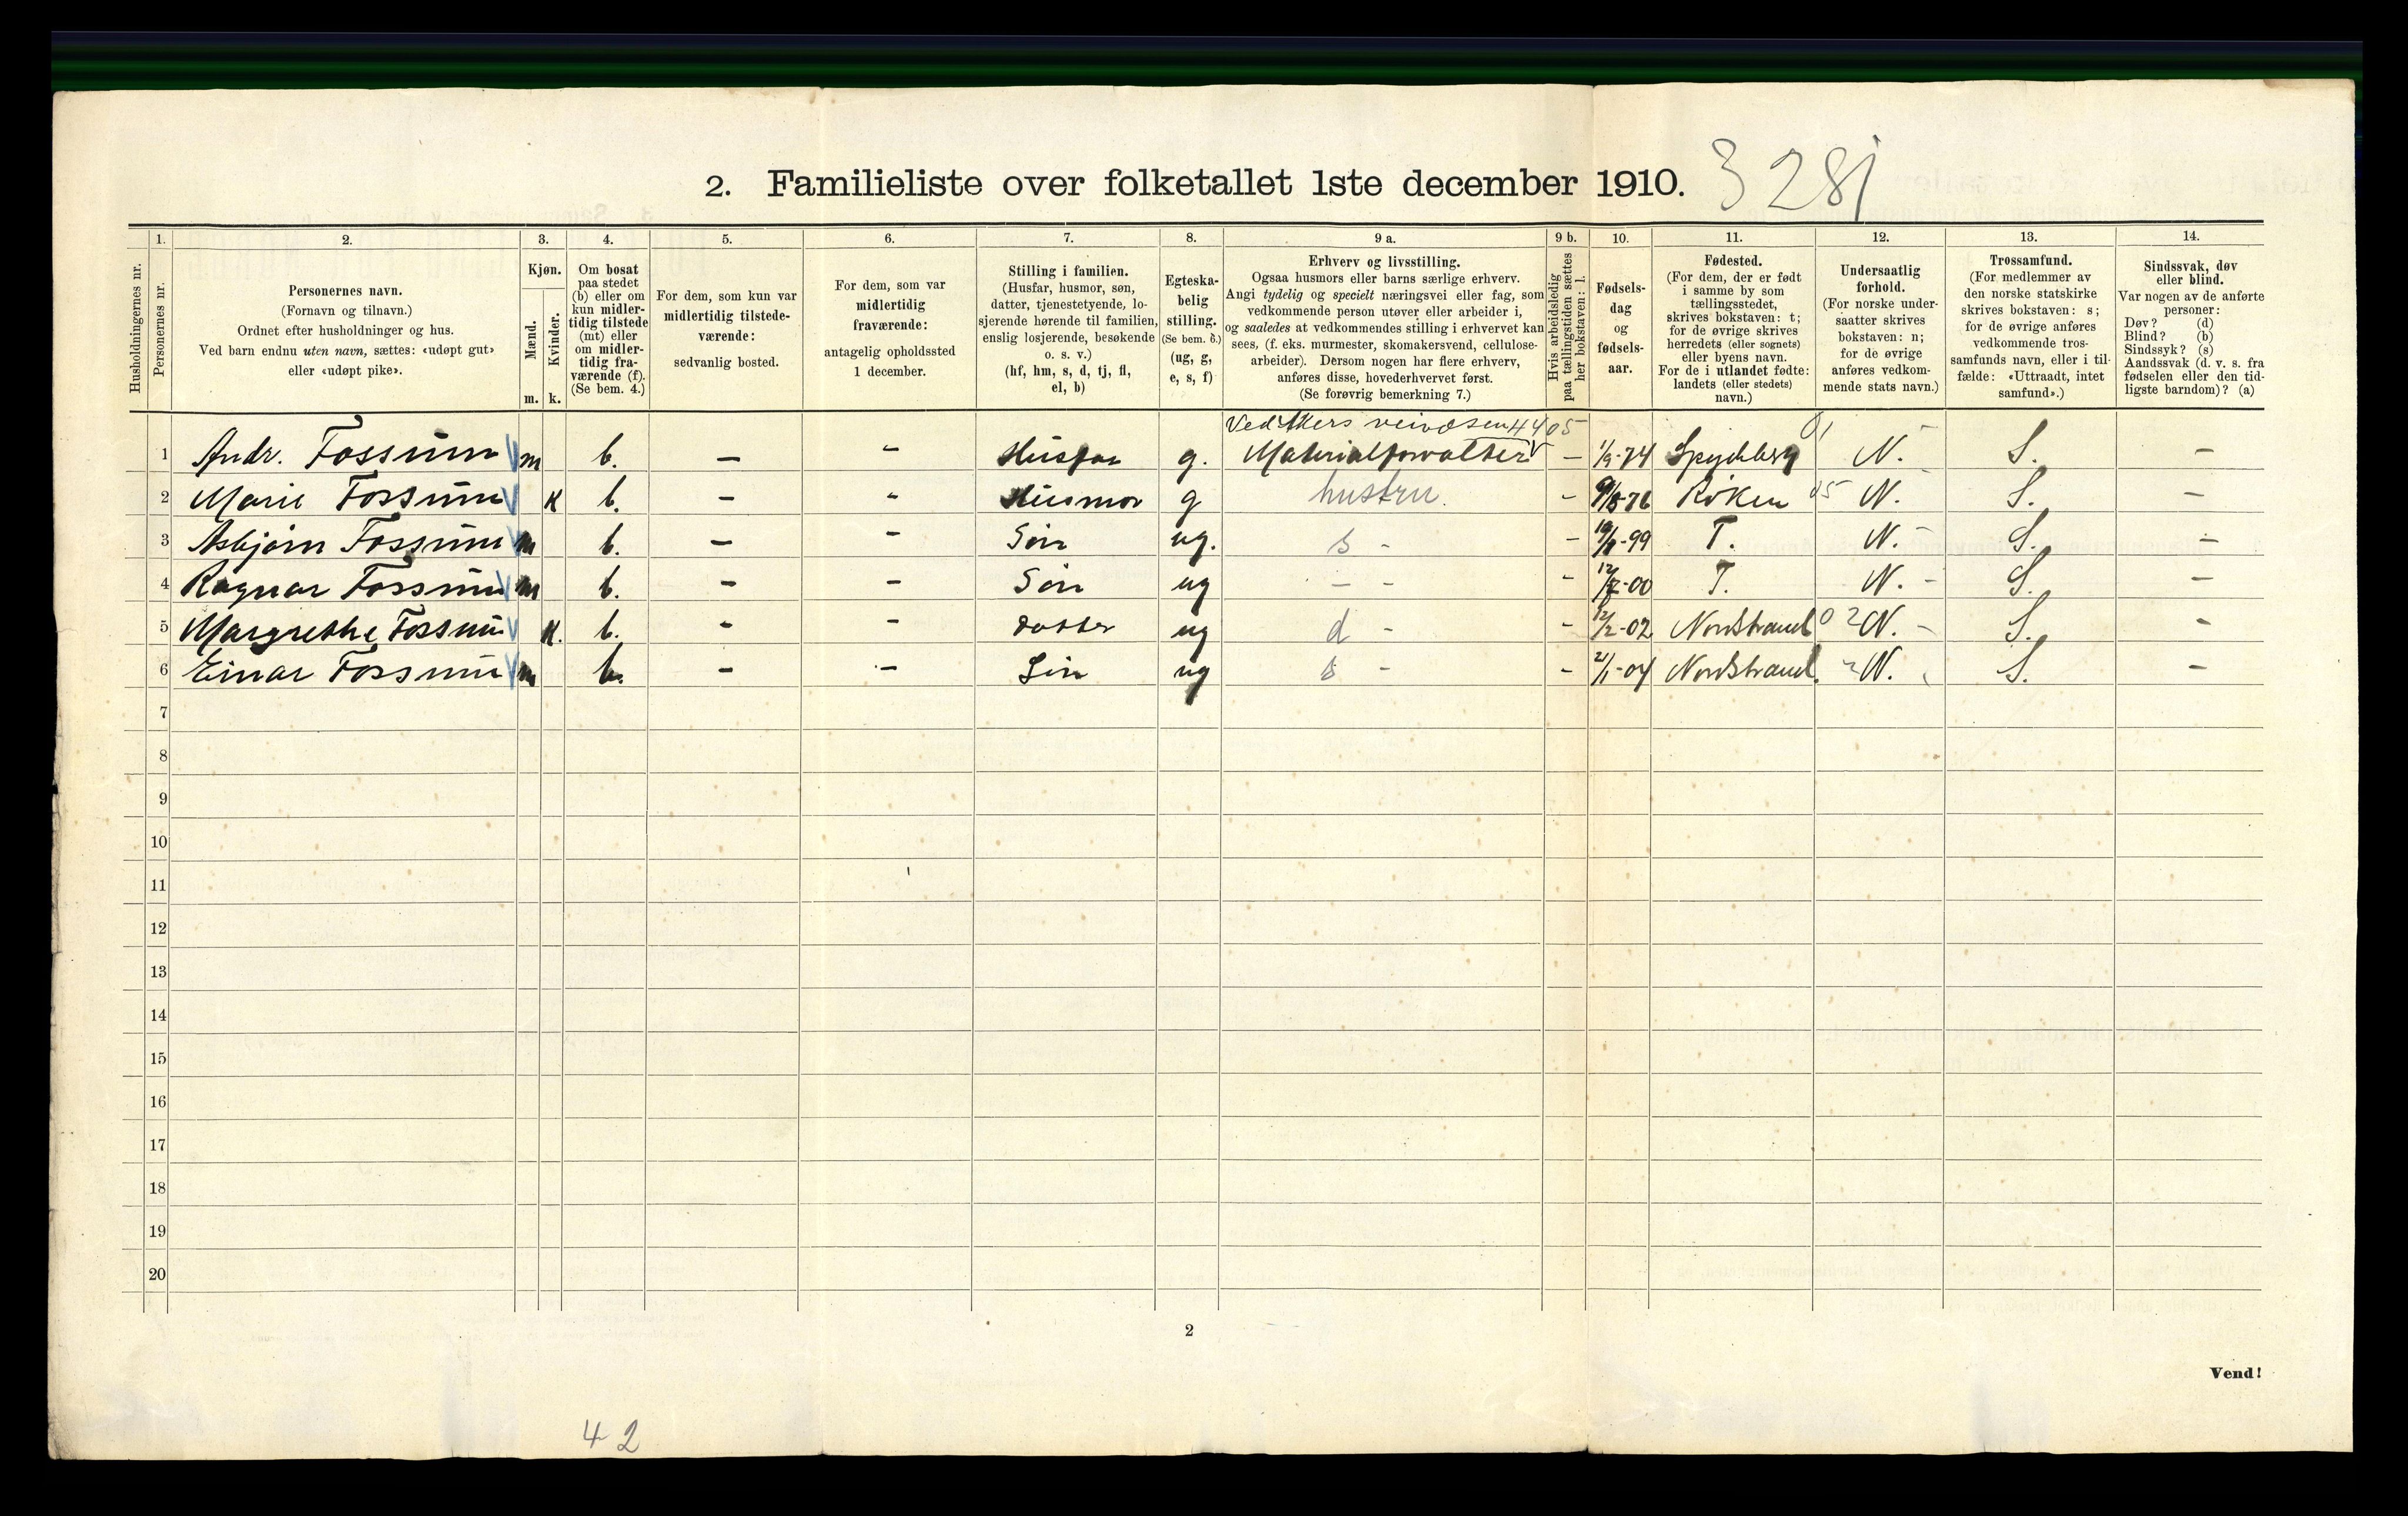 2. Familieliste over folketallet 1ste december 1910. 3281
1. 2. 3. 4. 5. 6. 7. 8. 9 a. 9 b. 10. 11. 12. 13. 14.
Husholdningernes nr.
Personernes nr.
Personernes navn.
(Fornavn og tilnavn.)
Ordnet efter husholdninger og hus.
Ved barn endnu uten navn, sættes: «udøpt gut»
eller «udøpt pike».
Kjøn.
Mænd.
Kvinder.
m. k.
Om bosat
paa stedet
(b) eller om
kun midler-
tidig tilstede
(mt) eller
om midler-
tidig fra-
værende (f).
(Se bem. 4.)
For dem, som kun var
midlertidig tilstede-
værende:
sedvanlig bosted.
For dem, som var
midlertidig
fraværende:
antagelig opholdssted
1 december.
Stilling i familien.
(Husfar, husmor, søn,
datter, tjenestetyende, lo-
sjerende hørende til familien,
enslig losjerende, besøkende
o. s. v.)
(hf, hm, s, d, tj, fl,
el, b)
Egteska-
belig
stilling.
(Se bem. 6.)
(ug, g,
e, s, f)
Erhverv og livsstilling.
Ogsaa husmors eller barns særlige erhverv.
Angi tydelig og specielt næringsvei eller fag, som
vedkommende person utøver eller arbeider i,
og saaledes at vedkommendes stilling i erhvervet kan
sees, (f. eks. murmester, skomakersvend, cellulose-
arbeider). Dersom nogen har flere erhverv,
anføres disse, hovederhvervet først.
(Se forøvrig bemerkning 7.)
Hvis arbeidsledig
paa tællingstiden sættes
her bokstaven: l.
Fødsels-
dag
og
fødsels-
aar.
Fødested.
(For dem, der er født
i samme by som
tællingsstedet,
skrives bokstaven: t;
for de øvrige skrives
herredets (eller sognets)
eller byens navn.
For de i utlandet fødte:
landets (eller stedets)
navn.)
Undersaatlig
forhold.
(For norske under-
saatter skrives
bokstaven: n;
for de øvrige
anføres vedkom-
mende stats navn.)
Trossamfund.
(For medlemmer av
den norske statskirke
skrives bokstaven: s;
for de øvrige anføres
vedkommende tros-
samfunds navn, eller i til-
fælde: «Uttraadt, intet
samfund».)
Sindssvak, døv
eller blind.
Var nogen av de anførte
personer:
Døv? (d)
Blind? (b)
Sindssyk? (s)
Aandssvak (d. v. s. fra
fødselen eller den tid-
ligste barndom)? (a)
Ved Akers veivæsen 4405
1 Andr. Fossum m b. - - Husfar g. Materialforvalter - 1/9-74 Spydeberg 01 N. - S. -
2 Marie Fossum K b. - - Husmor g hustru. - Røken 05 N. S. -
3 Asbjørn Fossum m b. - - Søn ug. s - - T. N. - S. -
4 Ragnar Fossum m b. - - Søn ug - - - T. N. - S. -
5 Margrethe Fossum K. b. - - datter ug d - - 12/2-02 Nordstrand 02 N. - S. -
6 Einar Fossum m b. - - Søn ug s - - 21/1-04 Nordstrand. N. S. -
7
8
9
10
11
12
13
14
15
16
17
18
19
20
2
Vend!
42